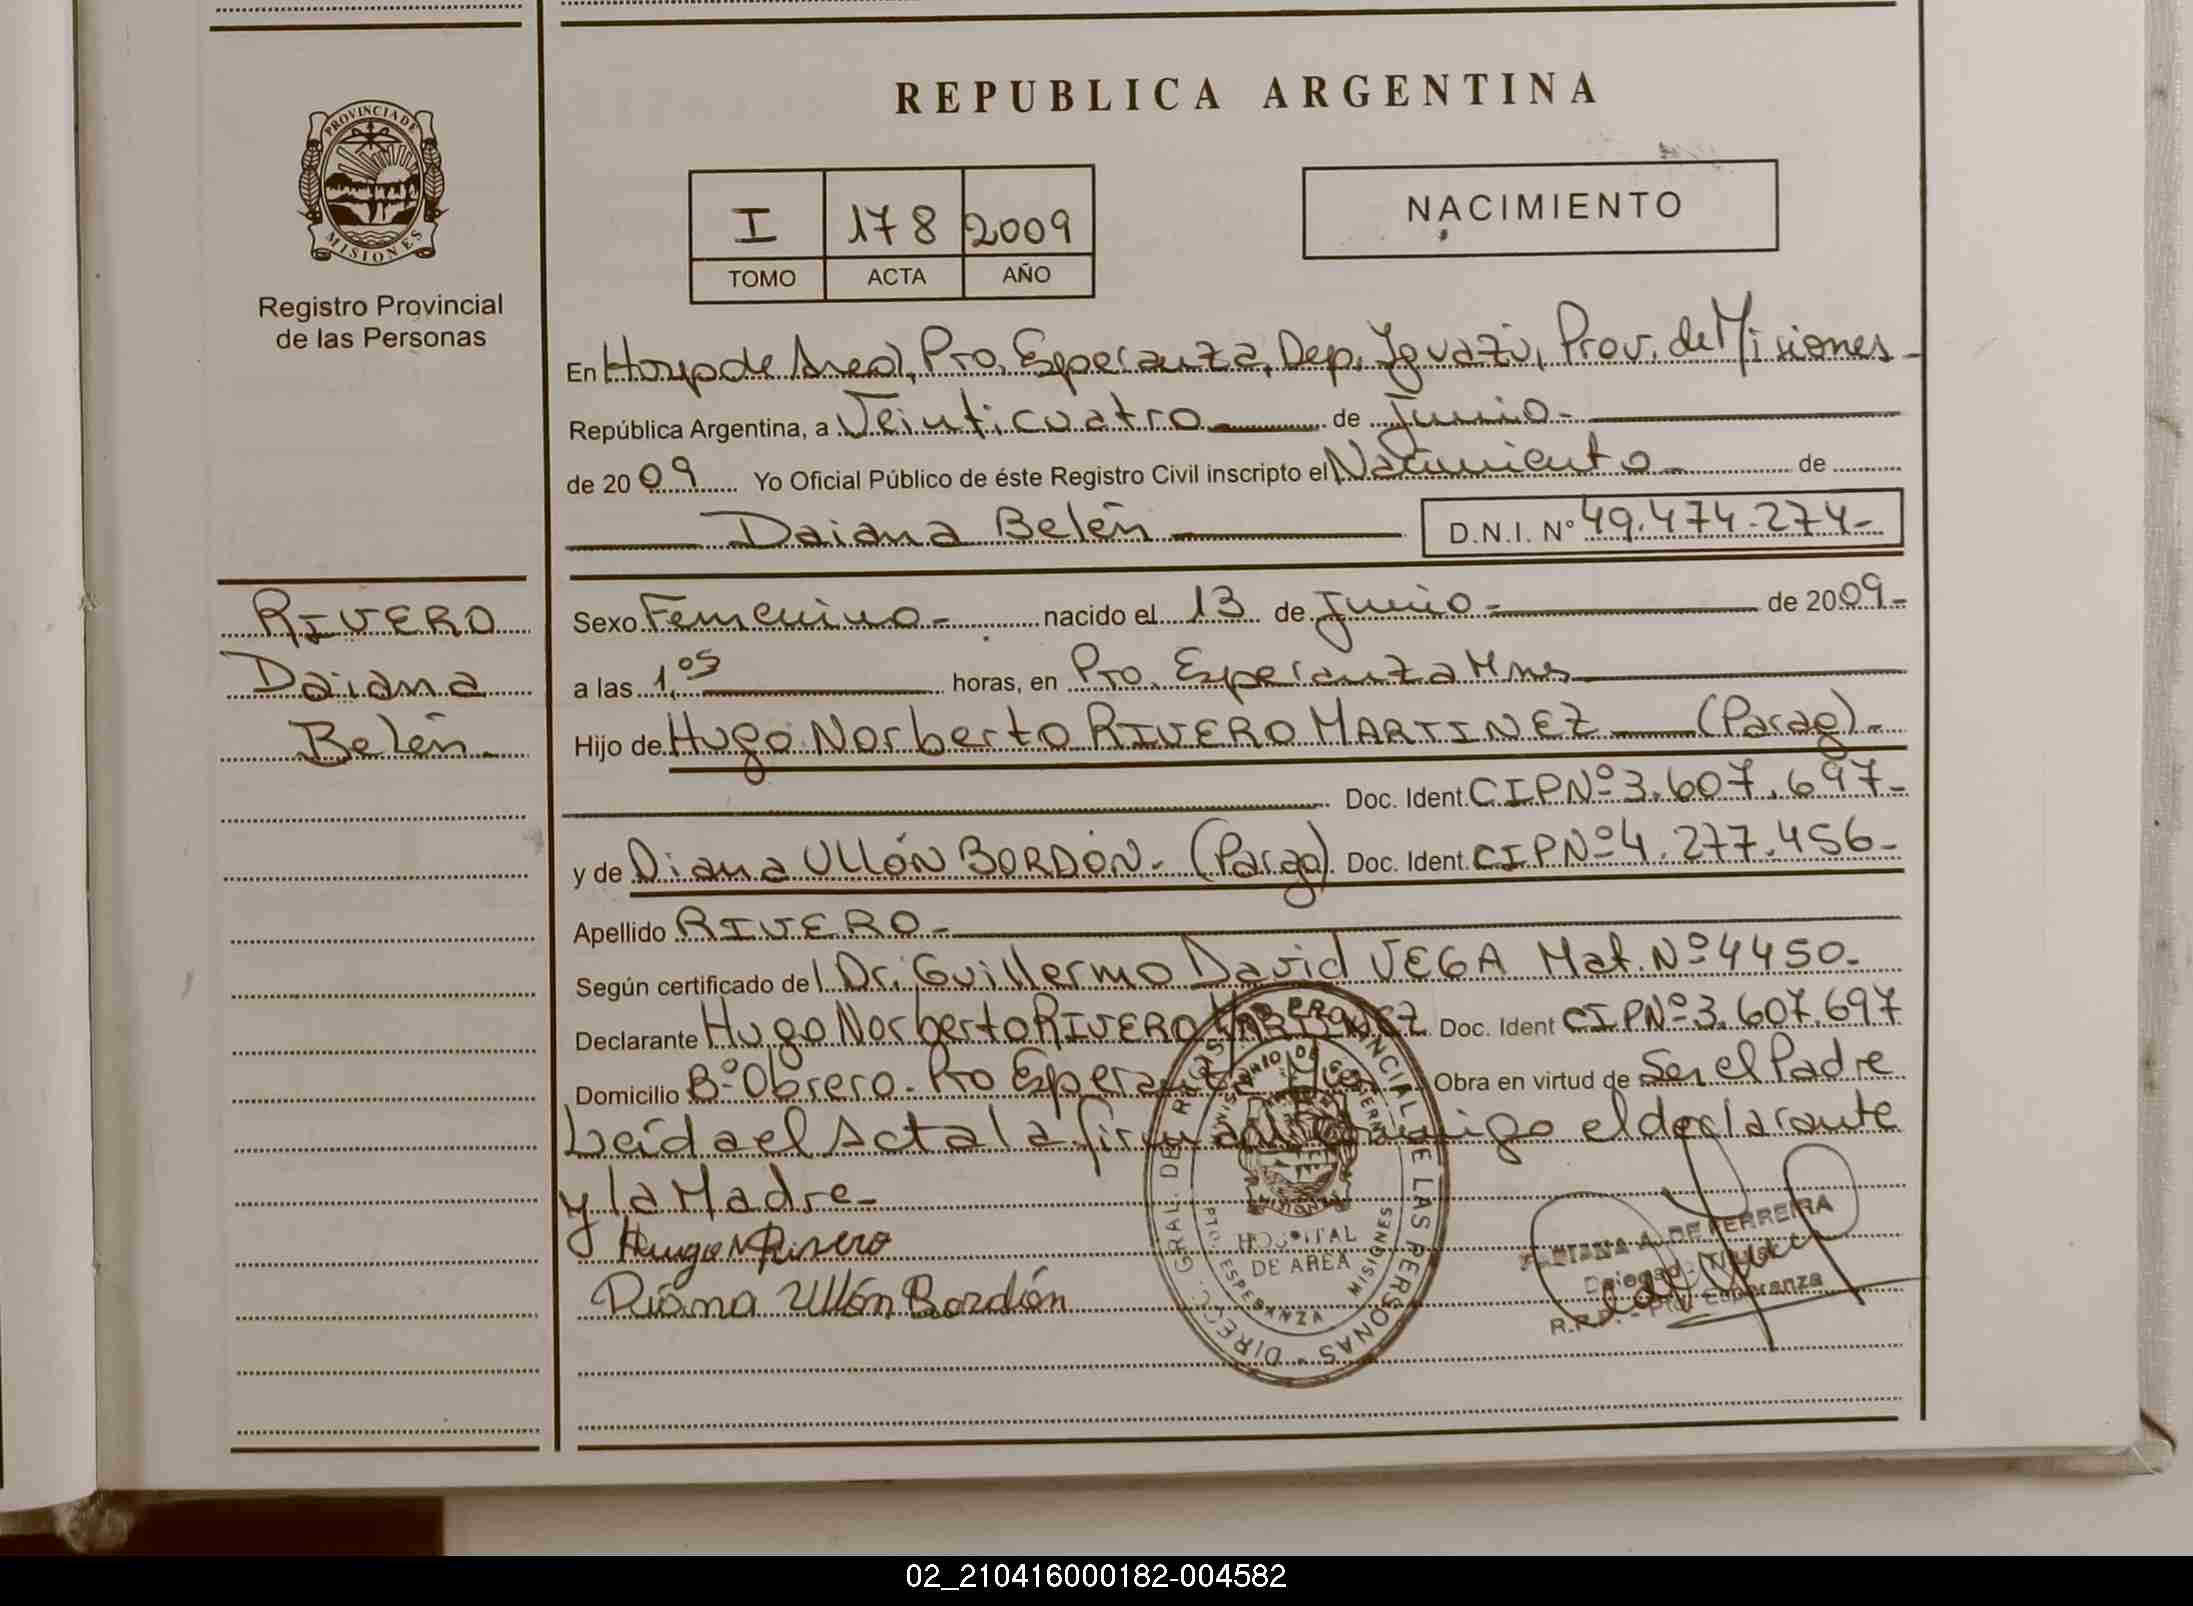 REPUBLICA ARGENTINA
PROVINCIA DE
MISIONES
Registro Provincial
de las Personas
I 178 2009
TOMO ACTA AÑO
NACIMIENTO
En Hosp de Area, Pto. Esperanza, Dep. Iguazú, Prov. de Misiones
República Argentina, a Veinticuatro de Junio
de 2009 Yo Oficial Público de éste Registro Civil inscripto el Nacimiento de
Daiana Belén D.N.I. Nº 49.474.274-
RIVERO
Daiana
Belén-
Sexo Femenino- nacido el 13 de Junio- de 2009-
a las 1,05 horas, en Pto. Esperanza Mnes
Hijo de Hugo Norberto RIVERO MARTINEZ (Parag)-
Doc. Ident. CIPNº3.607.697-
y de Diana ULLÓN BORDÓN- (Parag) Doc. Ident. CIPNº4.277.456-
Apellido RIVERO-
Según certificado del Dr. Guillermo David VEGA Mat. Nº4450-
Declarante Hugo Norberto RIVERO MARTINEZ Doc. Ident CIPNº3.607.697
Domicilio Bº Obrero. Pto Esperanza Obra en virtud de Ser el Padre
Leída el Acta la firman conmigo el declarante
y la Madre-
Hugo N Rivero
Diana Ullón Bordón
DIREC. GRAL. DEL REG. PROVINCIAL DE LAS PERSONAS
MINISTERIO DE GOBIERNO
HOSPITAL
DE AREA
PTO. ESPERANZA MISIONES
A. DE FERREIRA
R.P.P. - Pto. Esperanza
02_210416000182-004582